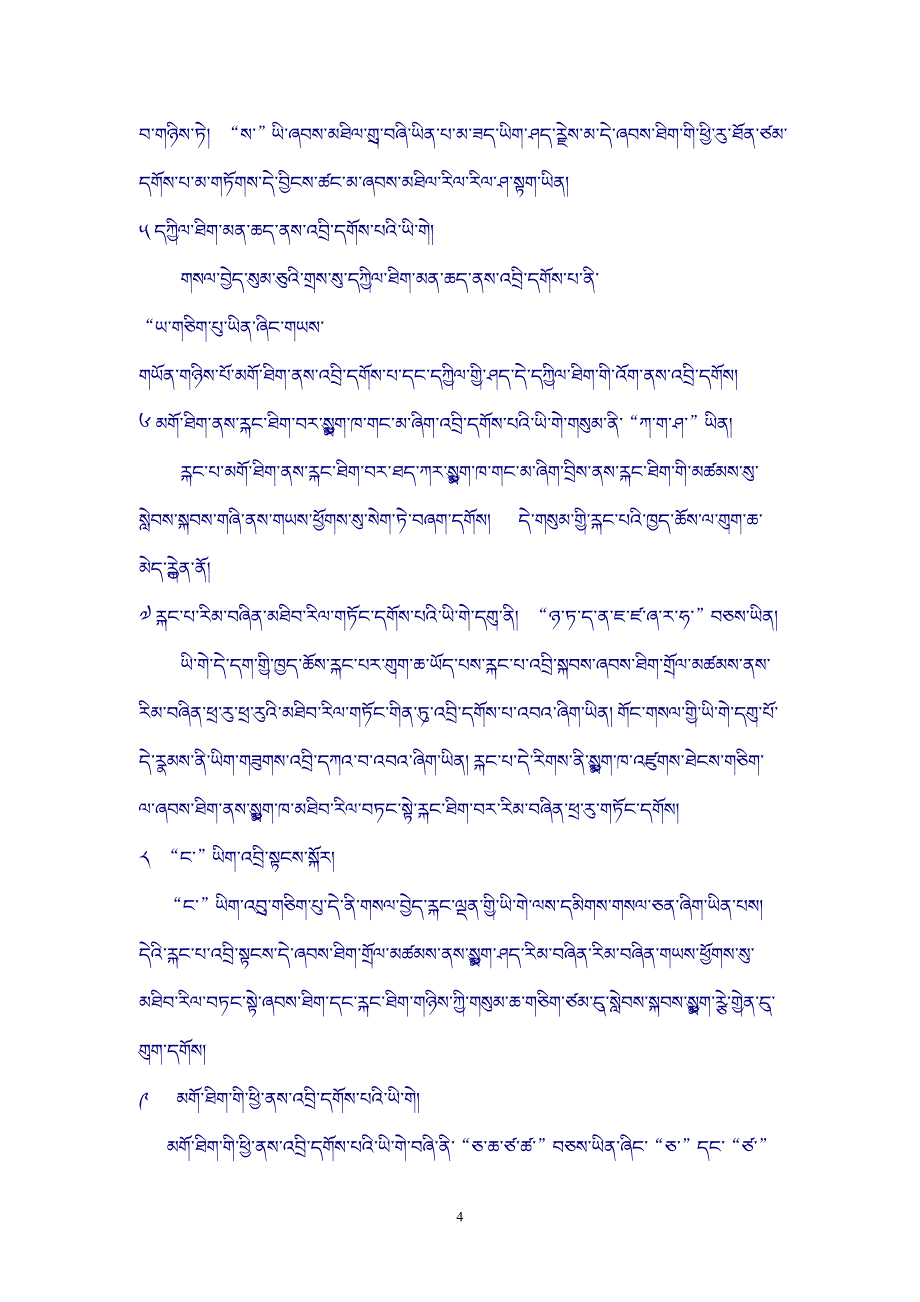 བ་གཉིས་ཏེ། “ས་”ཡི་ཞབས་མཐིལ་གྲུ་བཞི་ཡིན་པ་མ་ཟད་ཡིག་ཤད་རྗེས་མ་དེ་ཞབས་ཐིག་གི་ཕྱི་རུ་ཐོན་ཙམ་
དགོས་པ་མ་གཏོགས་དེ་བྱིངས་ཚང་མ་ཞབས་མཐིལ་རིལ་རིལ་ཤ་སྟག་ཡིན།
༥ དཀྱིལ་ཐིག་མན་ཆད་ནས་འབྲི་དགོས་པའི་ཡི་གེ།
གསལ་བྱེད་སུམ་ཅུའི་གྲས་སུ་དཀྱིལ་ཐིག་མན་ཆད་ནས་འབྲི་དགོས་པ་ནི་
“ཡ་གཅིག་པུ་ཡིན་ཞིང་གཡས་
གཡོན་གཉིས་པོ་མགོ་ཐིག་ནས་འབྲི་དགོས་པ་དང་དཀྱིལ་གྱི་ཤད་དེ་དཀྱིལ་ཐིག་གི་འོག་ནས་འབྲི་དགོས།
༦ མགོ་ཐིག་ནས་རྐང་ཐིག་བར་སྨྱུག་ཁ་གང་མ་ཞིག་འབྲི་དགོས་པའི་ཡི་གེ་གསུམ་ནི་“ཀ་ག་ཤ་”ཡིན།
རྐང་པ་མགོ་ཐིག་ནས་རྐང་ཐིག་བར་ཐད་ཀར་སྨྱུག་ཁ་གང་མ་ཞིག་བྲིས་ནས་རྐང་ཐིག་གི་མཚམས་སུ་
སླེབས་སྐབས་གཞི་ནས་གཡས་ཕྱོགས་སུ་སེག་ཏེ་བཞག་དགོས། དེ་གསུམ་གྱི་རྐང་པའི་ཁྱད་ཆོས་ལ་གུག་ཆ་
མེད་རྐྱེན་ནོ།
༧ རྐང་པ་རིམ་བཞིན་མཐིབ་རིལ་གཏོང་དགོས་པའི་ཡི་གེ་དགུ་ནི། “ཉ་ཏ་ད་ན་ཇ་ཛ་ཞ་ར་ཧ་”བཅས་ཡིན།
ཡི་གེ་དེ་དག་གྱི་ཁྱད་ཆོས་རྐང་པར་གུག་ཆ་ཡོད་པས་རྐང་པ་འབྲི་སྐབས་ཞབས་ཐིག་གྲོལ་མཚམས་ནས་
རིམ་བཞིན་ཕྲ་རུ་ཕྲ་རུའི་མཐིབ་རིལ་གཏོང་གིན་ཏུ་འབྲི་དགོས་པ་འབའ་ཞིག་ཡིན། གོང་གསལ་གྱི་ཡི་གེ་དགུ་པོ་
དེ་རྣམས་ནི་ཡིག་གཟུགས་འབྲི་དཀའ་བ་འབའ་ཞིག་ཡིན། རྐང་པ་དེ་རིགས་ནི་སྨྱུག་ཁ་འཛུགས་ཐེངས་གཅིག་
ལ་ཞབས་ཐིག་ནས་སྨྱུག་ཁ་མཐིབ་རིལ་བཏང་སྟེ་རྐང་ཐིག་བར་རིམ་བཞིན་ཕྲ་རུ་གཏོང་དགོས།
༨ “ང་”ཡིག་འབྲི་སྟངས་སྐོར།
“ང་”ཡིག་འབྲུ་གཅིག་པུ་དེ་ནི་གསལ་བྱེད་རྐང་ལྡན་གྱི་ཡི་གེ་ལས་དམིགས་གསལ་ཅན་ཞིག་ཡིན་པས།
དེའི་རྐང་པ་འབྲི་སྟངས་དེ་ཞབས་ཐིག་གྲོལ་མཚམས་ནས་སྨྱུག་ཤད་རིམ་བཞིན་རིམ་བཞིན་གཡས་ཕྱོགས་སུ་
མཐིབ་རིལ་བཏང་སྟེ་ཞབས་ཐིག་དང་རྐང་ཐིག་གཉིས་ཀྱི་གསུམ་ཆ་གཅིག་ཙམ་དུ་སླེབས་སྐབས་སྨྱུག་རྩེ་གྱེན་དུ་
གུག་དགོས།
༩ མགོ་ཐིག་གི་ཕྱི་ནས་འབྲི་དགོས་པའི་ཡི་གེ།
མགོ་ཐིག་གི་ཕྱི་ནས་འབྲི་དགོས་པའི་ཡི་གེ་བཞི་ནི་“ཅ་ཆ་ཙ་ཚ་”བཅས་ཡིན་ཞིང་“ཅ་”དང་“ཙ་”
4